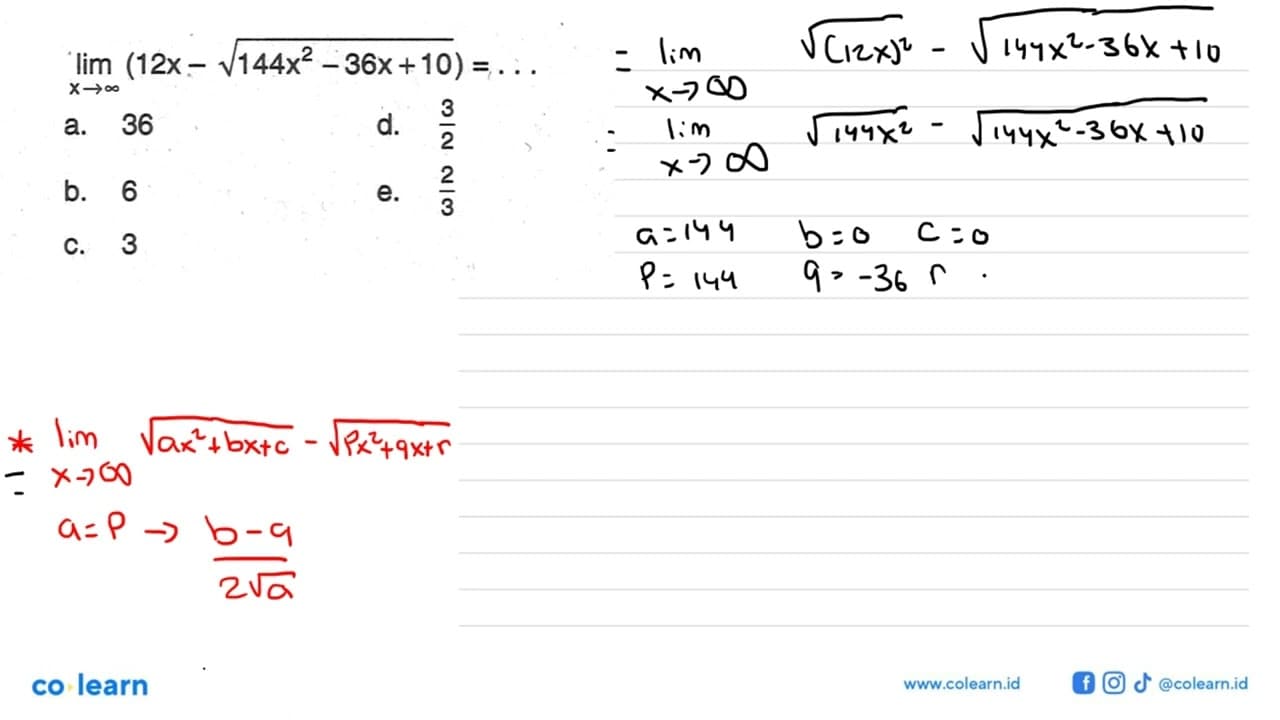 lim (12x − √144x² − 36x + 10) = . . .
x→∞
a. 36 d. 3/2
b. 6 e. 2/3
c. 3
= lim √(12x)² − √144x²-36x+10
x→∞
= lim √144x² − √144x²-36x+10
x→∞
a=144 b=0 c=0
P=144 q=-36 r
* lim √ax²+bx+c − √Px²+qx+r
= x→∞
a=P → b-q
2√a
co learn
www.colearn.id @colearn.id